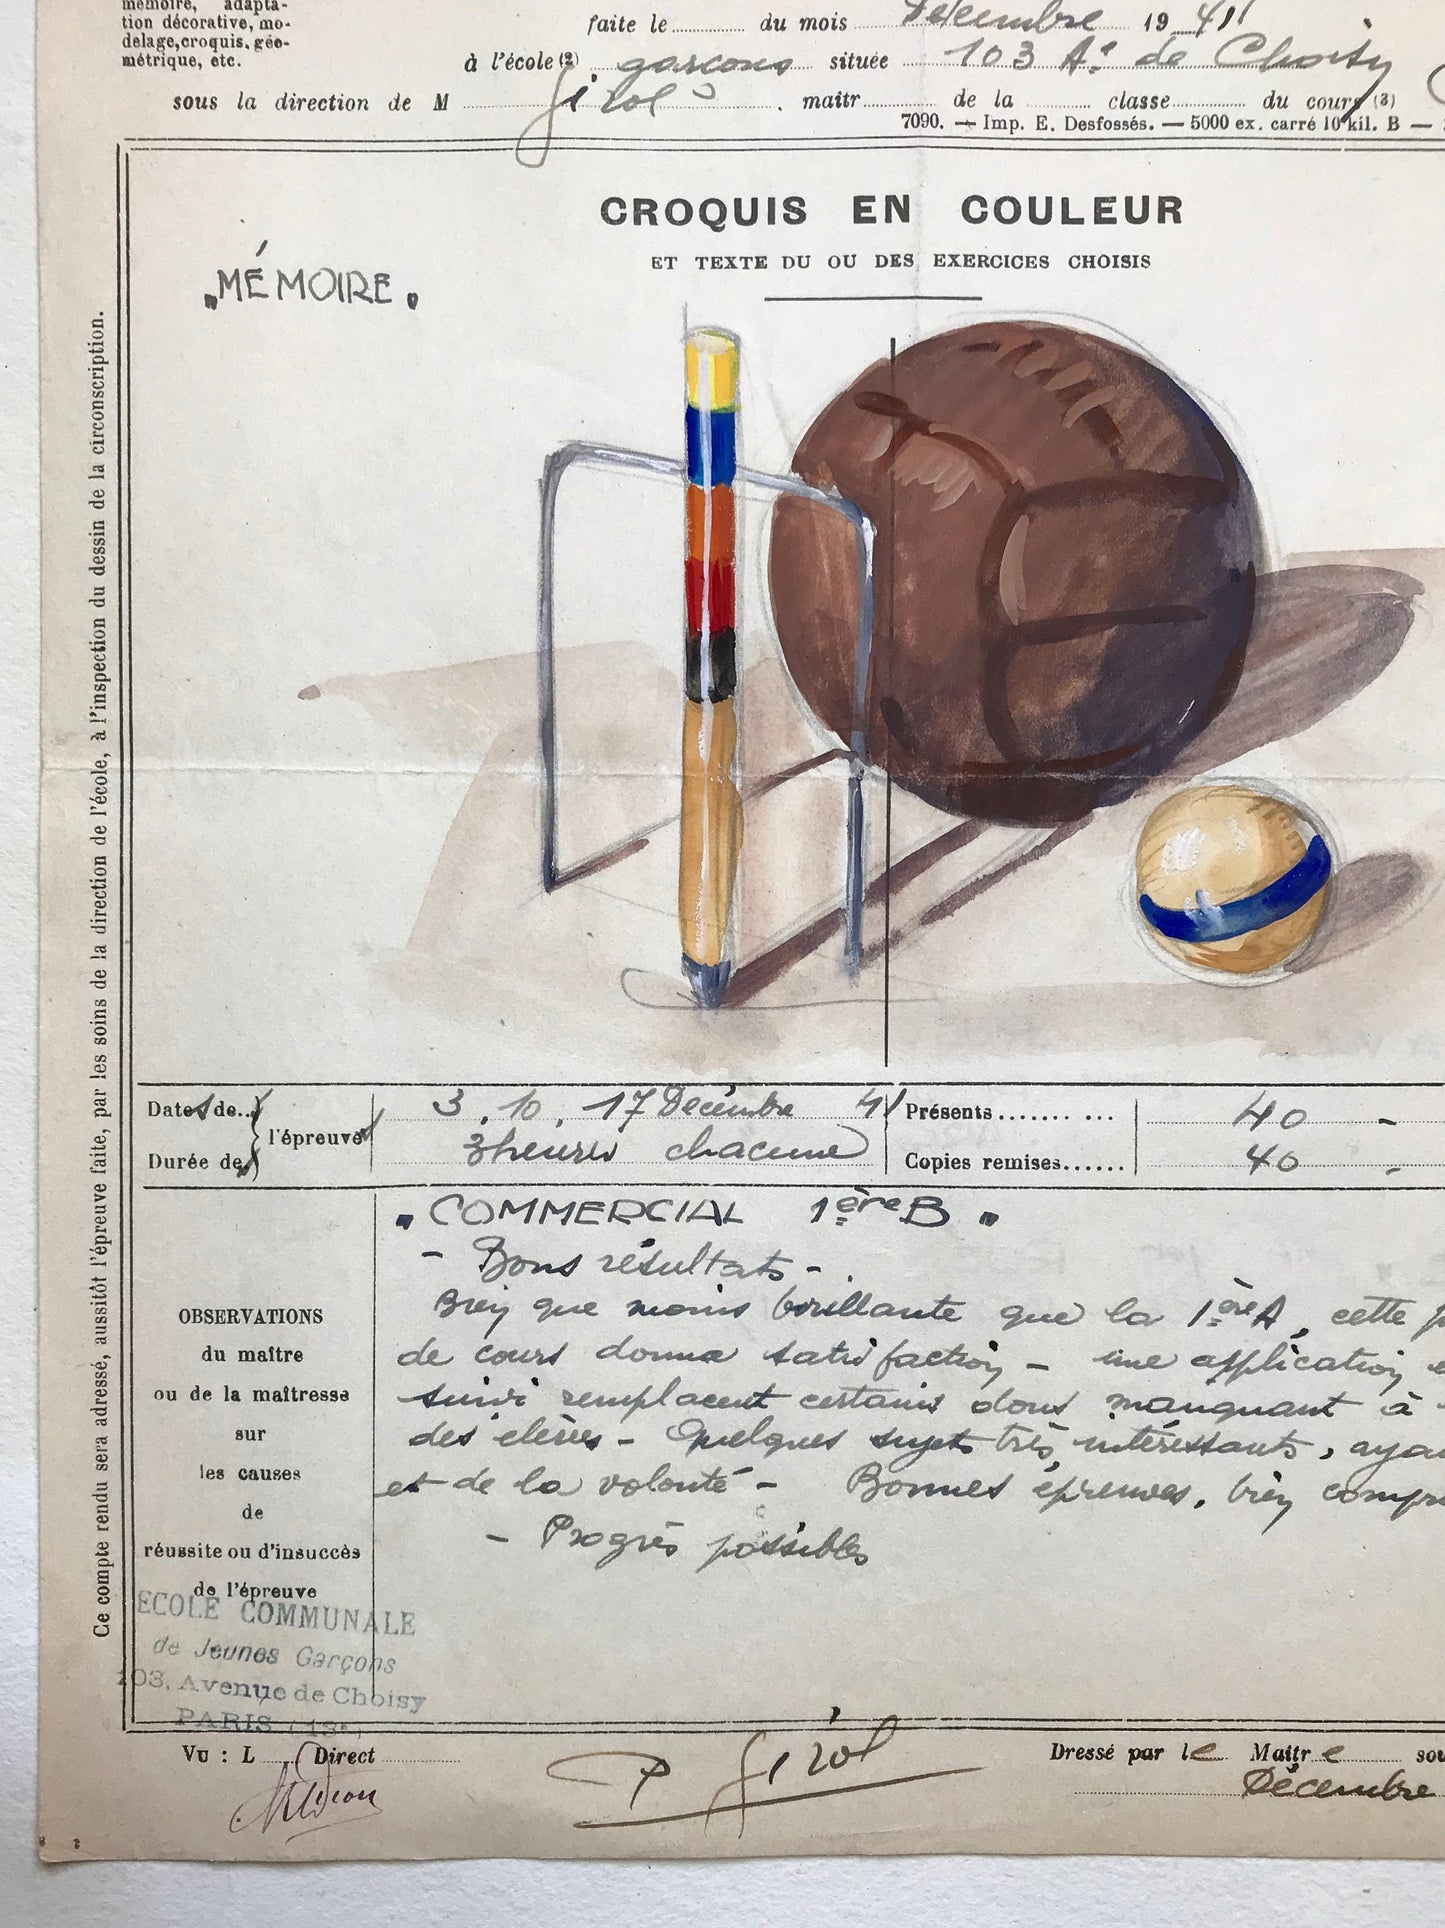 mémoire, adapta-
tion décorative, mo-
delage, croquis, géo-
métrique, etc.
faite le ......... du mois Décembre 19 41
à l'école (2) garçons située 103 Av. de Choisy
sous la direction de M Girol . maîtr ......... de la ......... classe ......... du cours (3)
7090. — Imp. E. Desfossés. — 5000 ex. carré 10 kil. B —
CROQUIS EN COULEUR
ET TEXTE DU OU DES EXERCICES CHOISIS
"MÉMOIRE"
Ce compte rendu sera adressé, aussitôt l'épreuve faite, par les soins de la direction de l'école, à l'inspection du dessin de la circonscription.
Dates de... l'épreuve 3, 10, 17 Décembre 41
Durée de 3 heures chacune
Présents....... ... 40 -
Copies remises...... 40 -
OBSERVATIONS
du maître
ou de la maîtresse
sur
les causes
de
réussite ou d'insuccès
de l'épreuve
"COMMERCIAL 1ère B"
- Bons résultats -
Bien que moins brillante que la 1ère A, cette
de cours donna satisfaction - une application
suivi remplacent certains dons manquant à
des élèves - Quelques sujets très intéressants,
et de la volonté - Bonnes épreuves, bien
- Progrès possibles
ECOLE COMMUNALE
de Jeunes Garçons
103, Avenue de Choisy
PARIS (13e)
Vu : L Direct
P Girol
Dressé par le Maître
Décembre